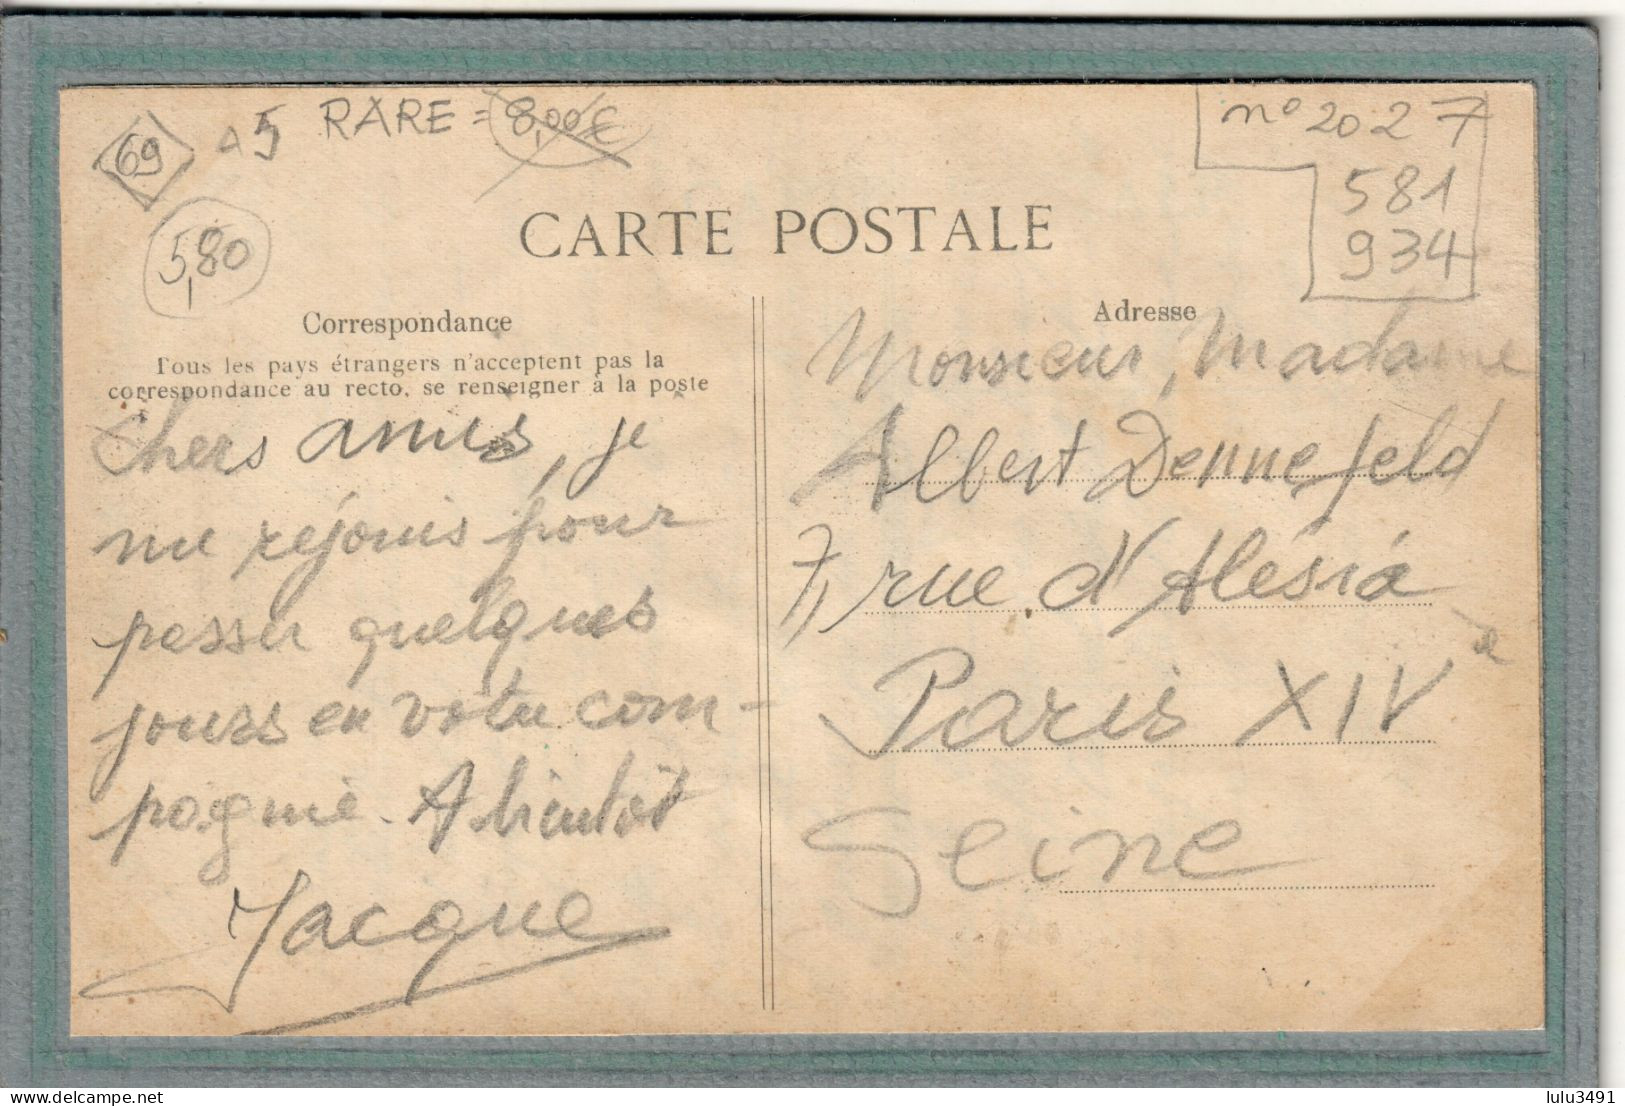 69
A5
RARE = 8,00€
n° 2027
581
934
5,80
CARTE POSTALE
Correspondance
Tous les pays étrangers n'acceptent pas la
correspondance au recto, se renseigner à la poste
Chers amis, je
me réjouis pour
passer quelques
jours en votre com-
pagnie. A bientôt
Jacque
Adresse
Monsieur, Madame
Albert Dennefeld
7, rue d'Alésia
Paris XIVe
Seine
lulu3491